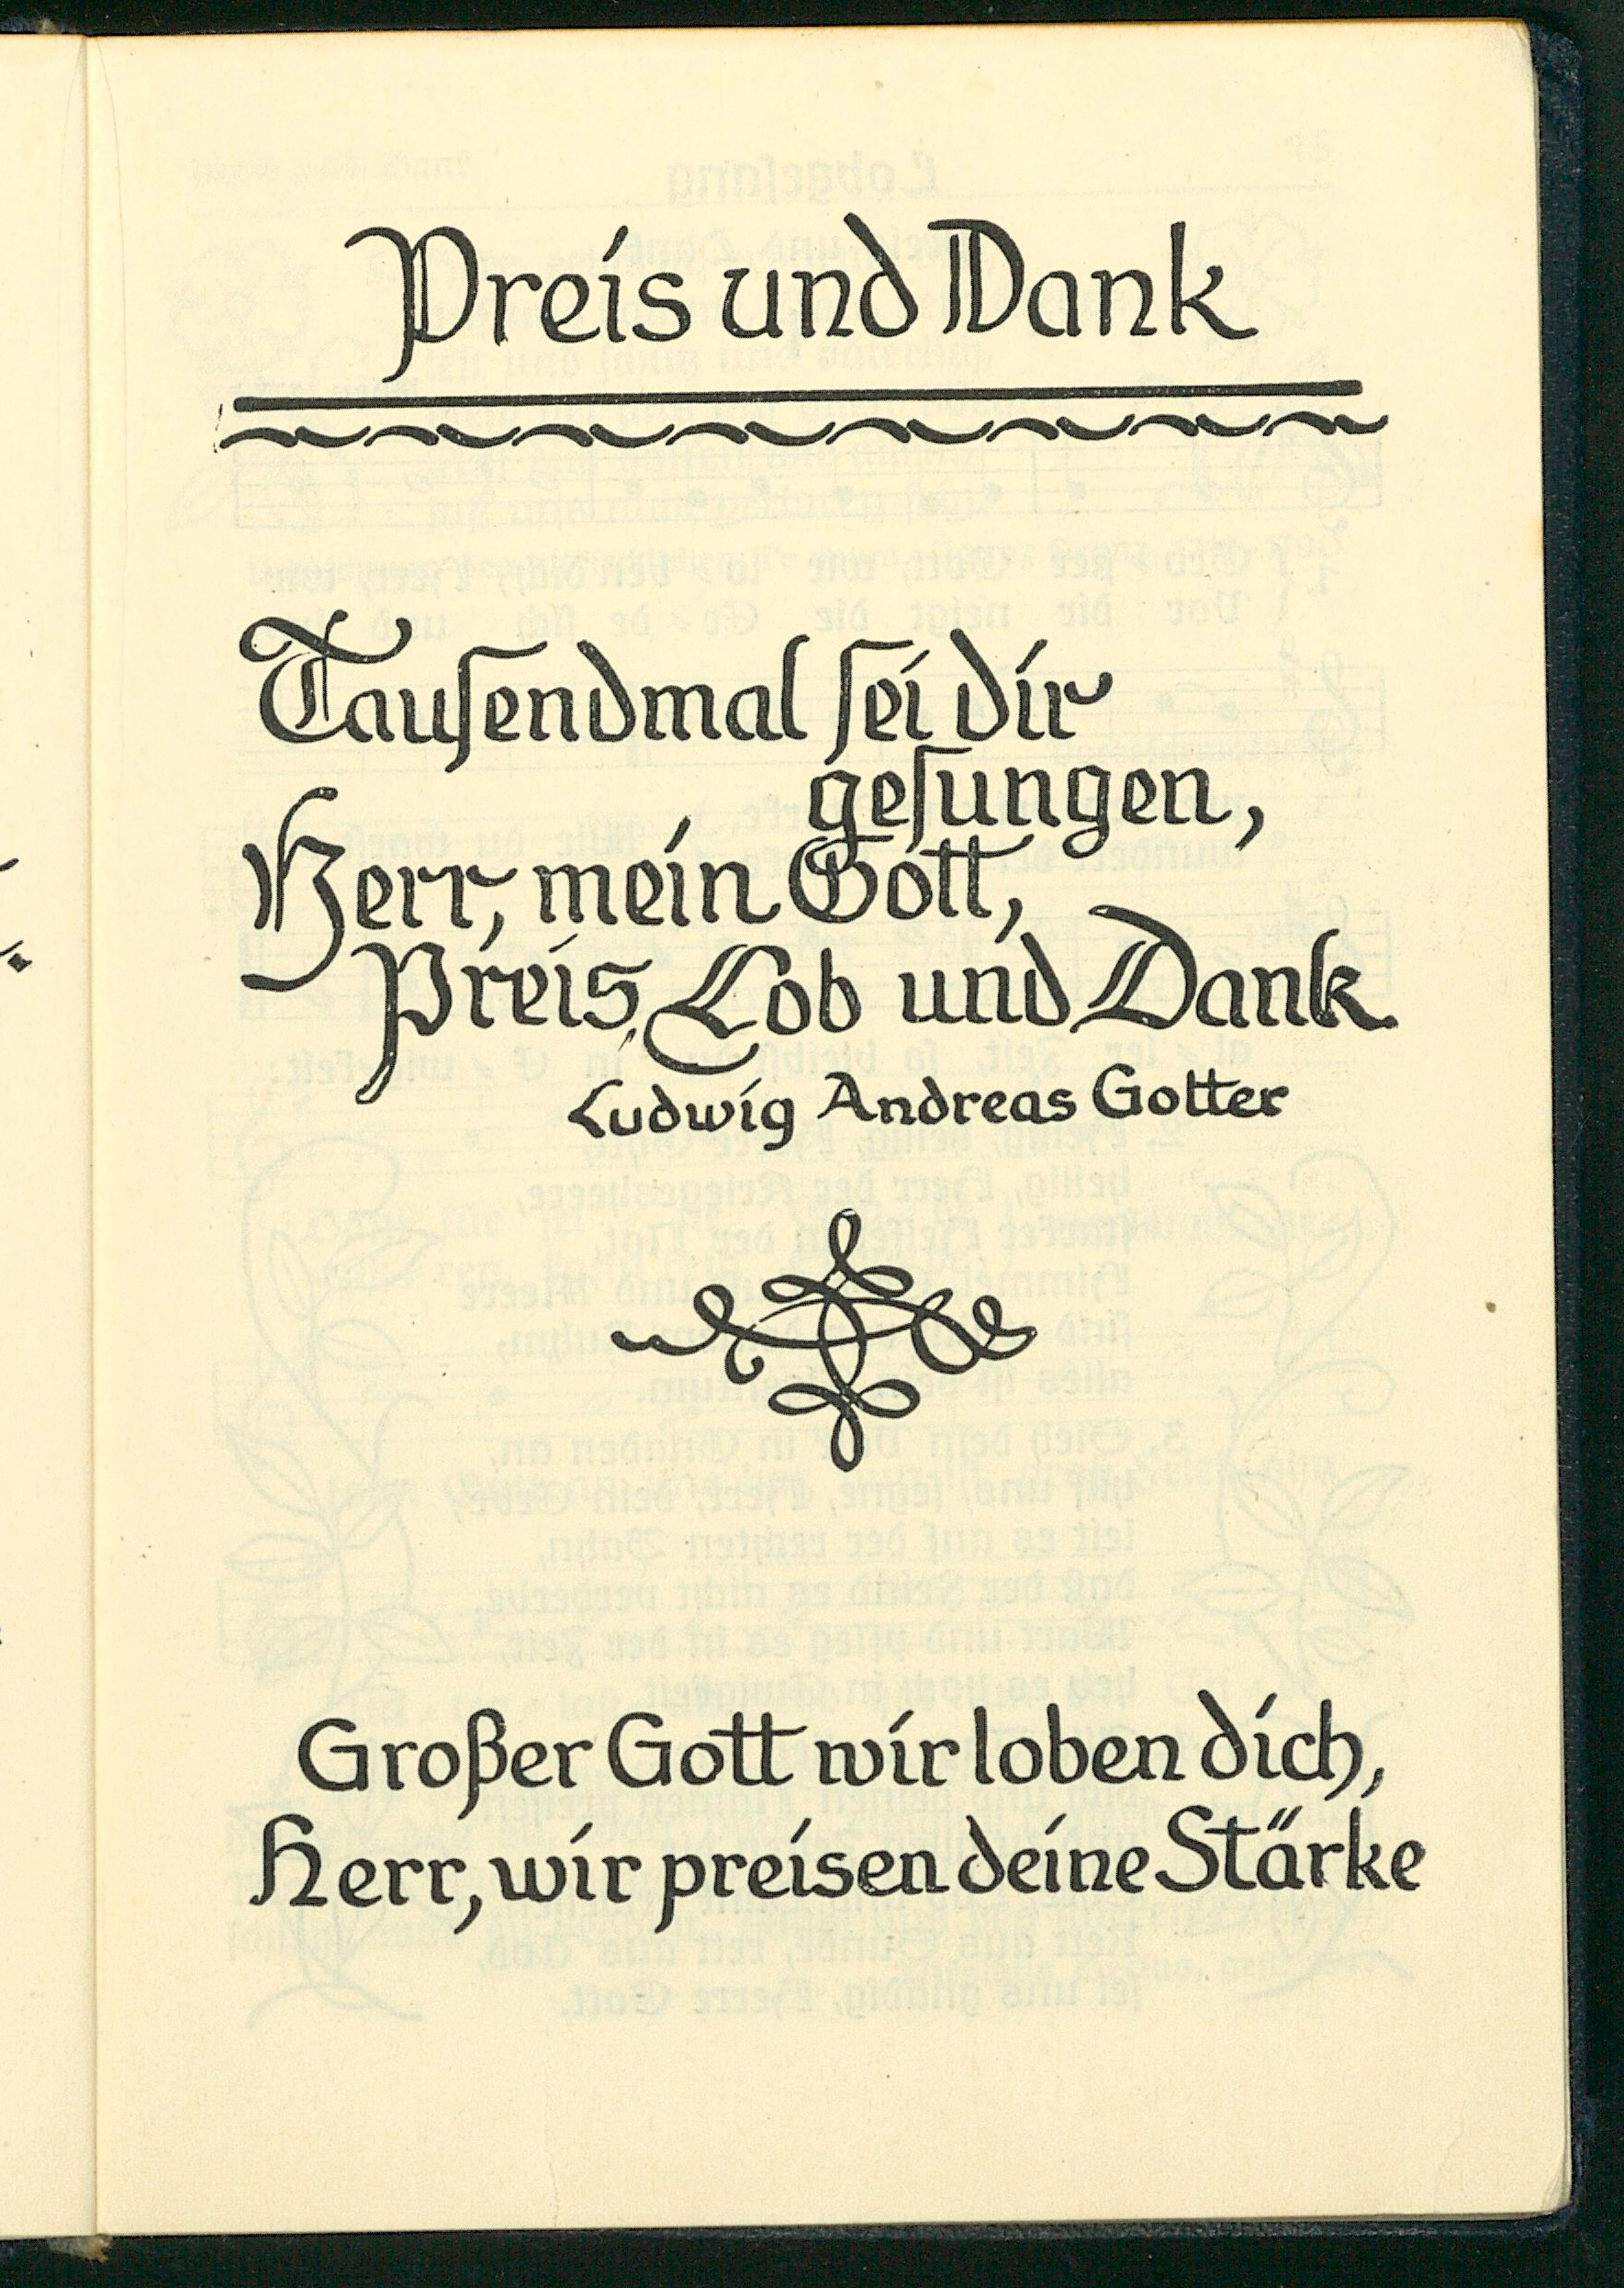 Preis und Dank
Tauſendmal ſei dir
geſungen,
Herr, mein Gott,
Preis, Lob und Dank.
Ludwig Andreas Gotter
Großer Gott wir loben dich,
Herr, wir preisen deine Stärke